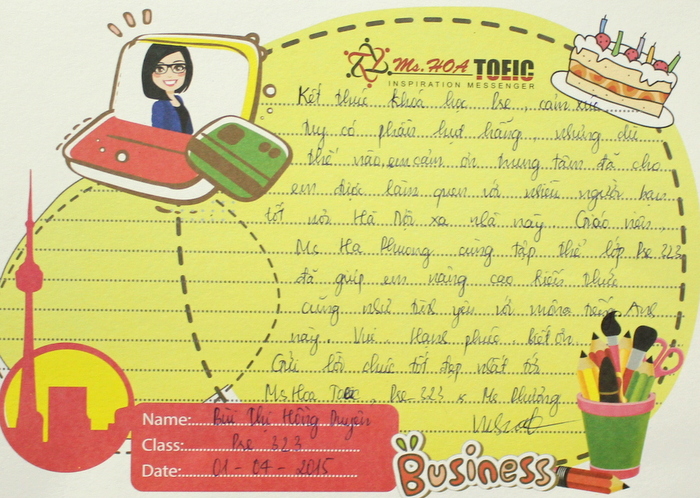 Ms. HOA TOEIC
INSPIRATION MESSENGER
Kết thúc khóa học Pre, cảm xúc
tuy có phần hụt hẫng, nhưng dù
thế nào, em cảm ơn trung tâm đã cho
em được làm quen với nhiều người bạn
tốt nơi Hà Nội xa nhà này. Giáo viên,
Ms Ha Phuong cùng tập thể lớp Pre 323
đã giúp em nâng cao kiến thức
cũng như tình yêu với môn tiếng Anh
này. Vui, Hạnh phúc, biết ơn
Gửi lời chúc tốt đẹp nhất tới
Ms.Hoa Toeic, Pre 323 & Ms Phương
Name: Bùi Thị Hồng Duyên
Class: Pre 323
Date: 01 - 04 - 2015
BUSINESS